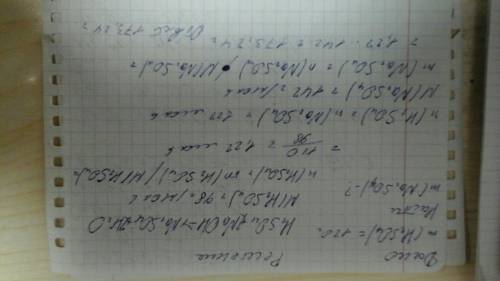 Дано Решение
m(H₂SO₄) = 120 H₂SO₄ + 2NaOH = Na₂SO₄ + 2H₂O
Найти
m(Na₂SO₄) - ?
M(H₂SO₄) = 98 г/моль
n(H₂SO₄) = m(H₂SO₄) / M(H₂SO₄) =
= 120/98 = 1,22 моль
n(H₂SO₄) = n(Na₂SO₄) = 1,22 моль
M(Na₂SO₄) = 142 г/моль
m(Na₂SO₄) = n(Na₂SO₄) · M(Na₂SO₄) =
= 1,22 · 142 = 173,24 г
Ответ 173,24 г